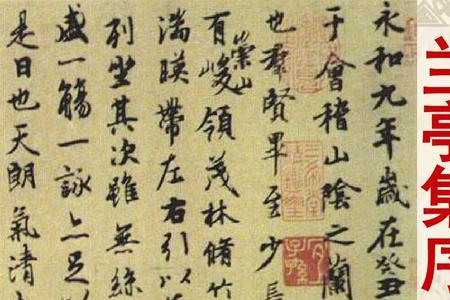 永和九年歲在癸丑
于會稽山陰之蘭
也羣賢畢至少長
有崇山峻領茂林脩竹
湍暎帶左右引以
列坐其次雖無絲
盛一觴一詠亦足
是日也天朗氣清
兰亭集序